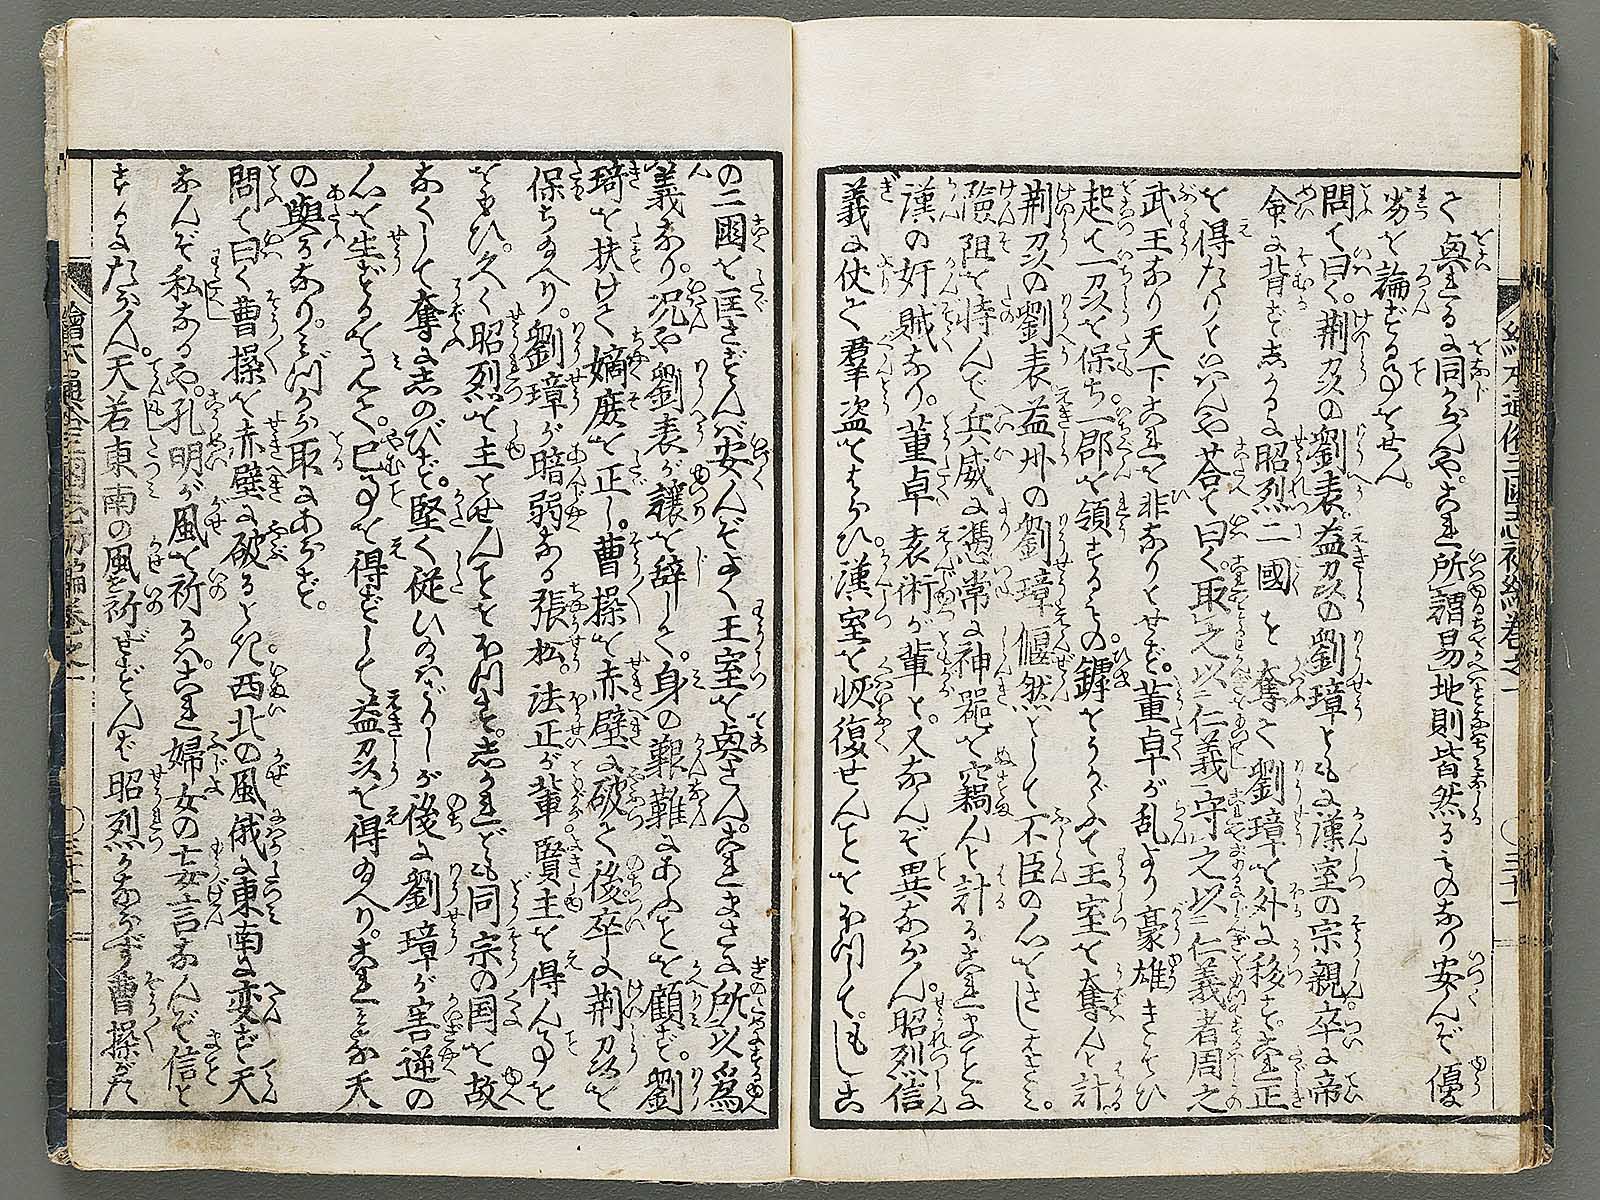 て奥まるに同からんや。これ所謂易地則皆然るものなり安んぞ優
劣を論ずる事をせん。
問て曰く。荆州の劉表益州の劉璋ともに漢室の宗親卒に帝
命に背ずしかるに昭烈二國を奪て劉璋を外に移す。豈正
を得たりといはんや荅て曰く取之以仁義守之以仁義者周之
武王なり天下これを非なりとせず。董卓が乱より豪雄きそひ
起て一州を保ち一郡を領するもの。鏬をうかがふて王室を奪んと計る
荆州の劉表益州の劉璋偃然として不臣の心をさしはさみ。
險阻を恃んで兵威に憑常に神噐を竊んと計る実にまことに
漢の奸賊なり。董卓袁術が輩と。又なんぞ異ならん。昭烈信
義に仗て羣盗をはらひ漢室を恢復せんとを欲して。もしこ
の二國を匡さずんば安んぞよく王室を奥さん。これまさに所以爲
義なり况や劉表が讓を辞して。身の艱難にあふとを顧ず。劉
琦を扶けて嫡庶を正し。曹操を赤壁に破て後卒に荆州を
保ち給へり。劉璋が暗弱なる張松。法正が輩賢主を得ん事を
をもひ。久く昭烈を主とせんとを欲す。しかれども同宗の国を故
なくして奪にしのびず。堅く従ひ給はざりしが後に劉璋が害逆の
心を生ずるをみて。已事を得ずして益州を得給へり。これみな天
の與るなり。みづから取にあらず。
問て曰く曹操を赤壁に破るとき西北の風俄に東南に変ず天
なんぞ私なるや。孔明が風を祈るは。これ婦女の妄言なんぞ信と
するにたらん。天若東南の風を祈ずとも昭烈かならず曹操がた
繪本通俗三國志初編卷之一
繪本通俗三國志初編卷之一